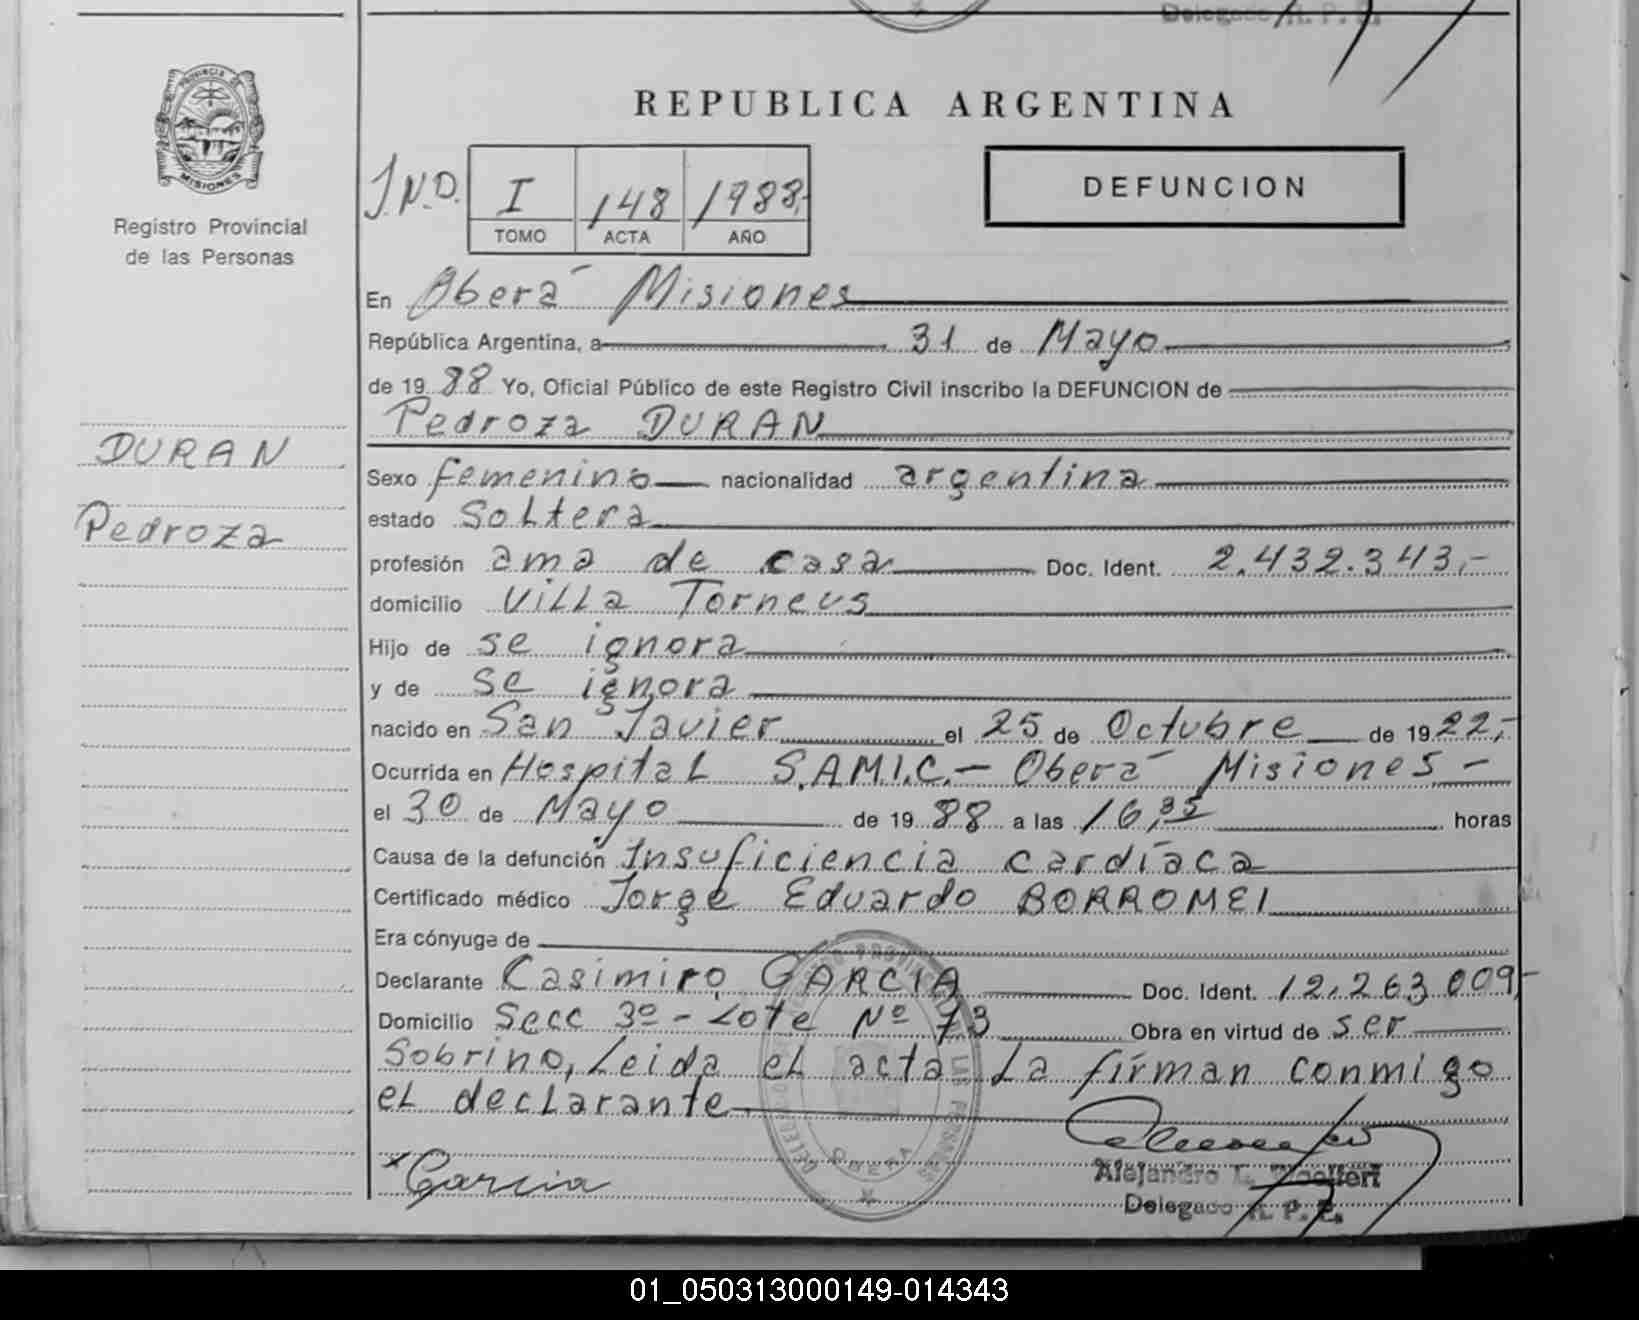 Delegado R. P. P.
PROVINCIA DE
MISIONES
Registro Provincial
de las Personas
REPUBLICA ARGENTINA
DEFUNCION
I 148 1988,-
TOMO ACTA AÑO
En Oberá Misiones
República Argentina, a 31 de Mayo
de 1988 Yo, Oficial Público de este Registro Civil inscribo la DEFUNCION de
Pedroza DURAN
DURAN
Pedroza
Sexo femenino nacionalidad argentina
estado Soltera
profesión ama de casa Doc. Ident. 2.432.343,-
domicilio Villa Torneus
Hijo de se ignora
y de se ignora
nacido en San Javier el 25 de Octubre de 1922,-
Ocurrida en Hospital S.A.M.I.C.- Oberá Misiones -
el 30 de Mayo de 1988 a las 16,35 horas
Causa de la defunción Insuficiencia cardíaca
Certificado médico Jorge Eduardo BORROMEI
Era cónyuge de
Declarante Casimiro GARCIA Doc. Ident. 12.263.009,-
Domicilio Secc 3º - Lote Nº 73 Obra en virtud de ser
Sobrino, Leida el acta La firman conmigo
el declarante
x Garcia
Alejandro L.
Delegado R. P. P.
OBERA
01_050313000149-014343